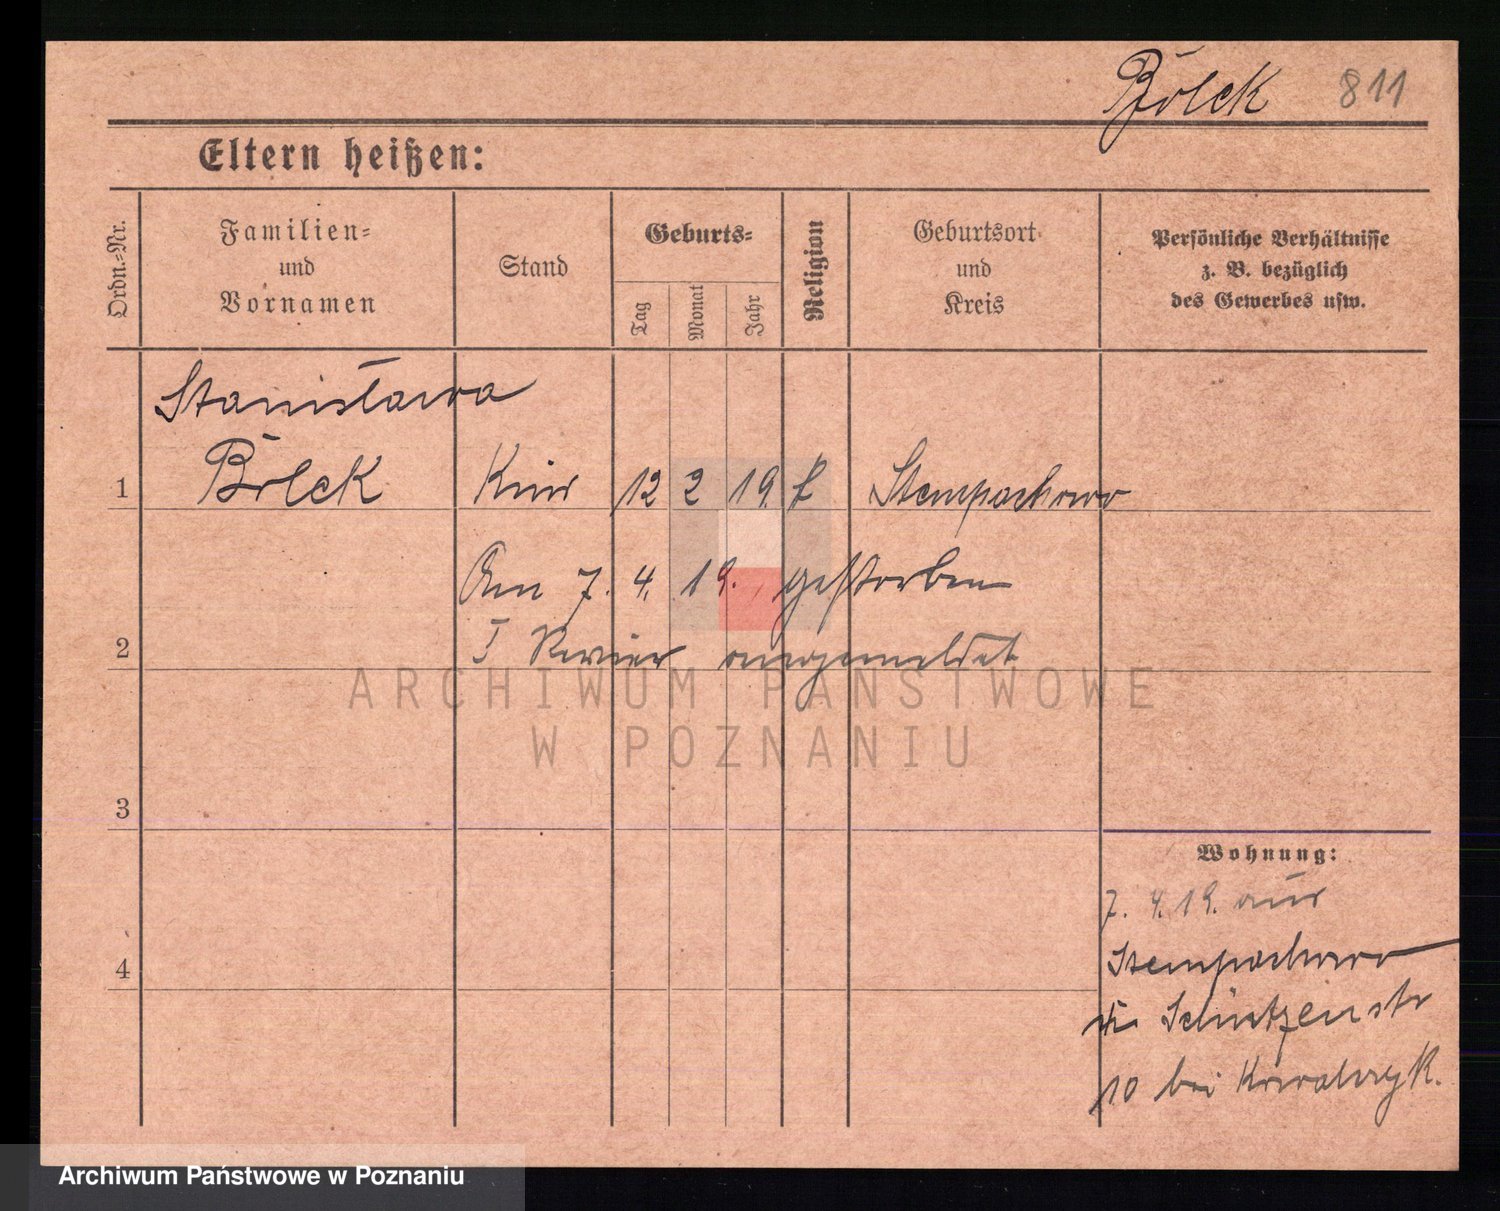 Bölck 811
Eltern heißen:
Ordn.-Nr.
Familien-
und
Vornamen
Stand
Geburts-
Tag
Monat
Jahr
Religion
Geburtsort
und
Kreis
Persönliche Verhältnisse
z. B. bezüglich
des Gewerbes usw.
Stanisława
1 Bölck Kind 12 2 19. k Stempochowo
Am 7. 4. 19. gestorben
2 I Revier angemeldet
ARCHIWUM PAŃSTWOWE
W POZNANIU
3
Wohnung:
7. 4. 19. aus
4 Stempochowo
Schützenstr
10 bei Kowalczyk.
Archiwum Państwowe w Poznaniu